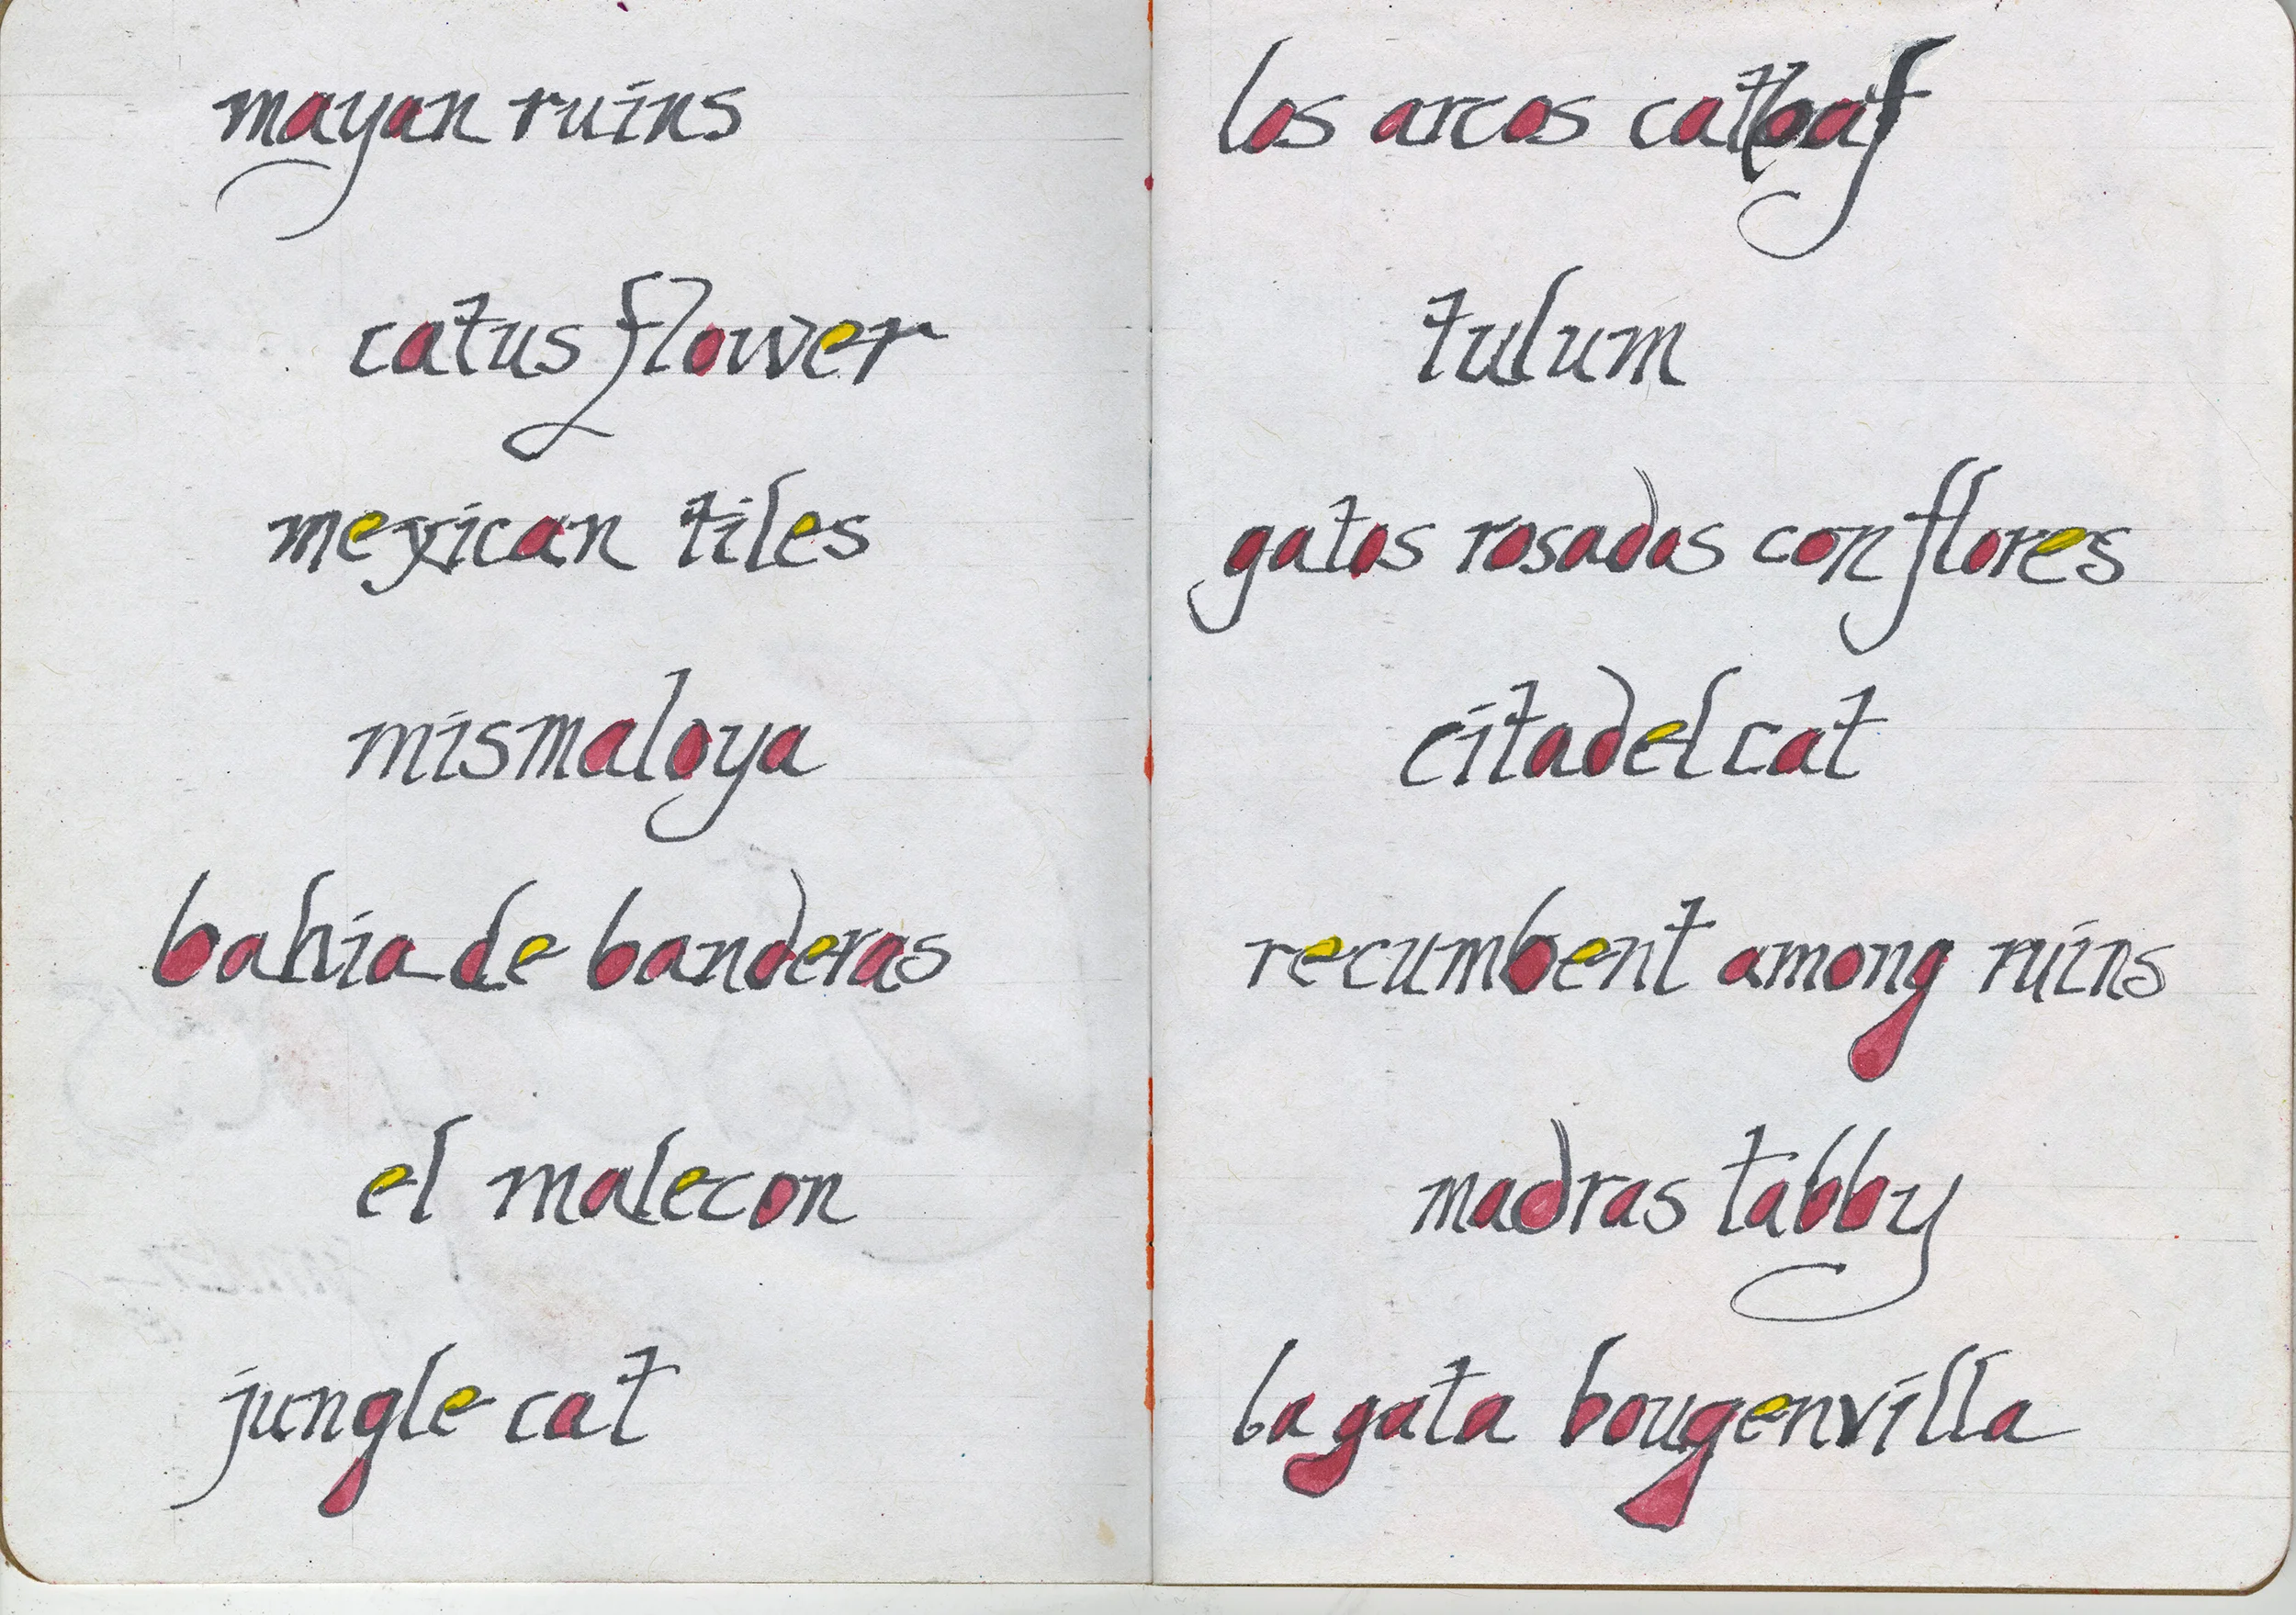 mayan ruins
catus flower
mexican tiles
mismaloya
bahia de banderas
el malecon
jungle cat
los arcos catboat
tulum
gatos rosados con flores
citadel cat
recumbent among ruins
madras tabby
la gata bougenvilla